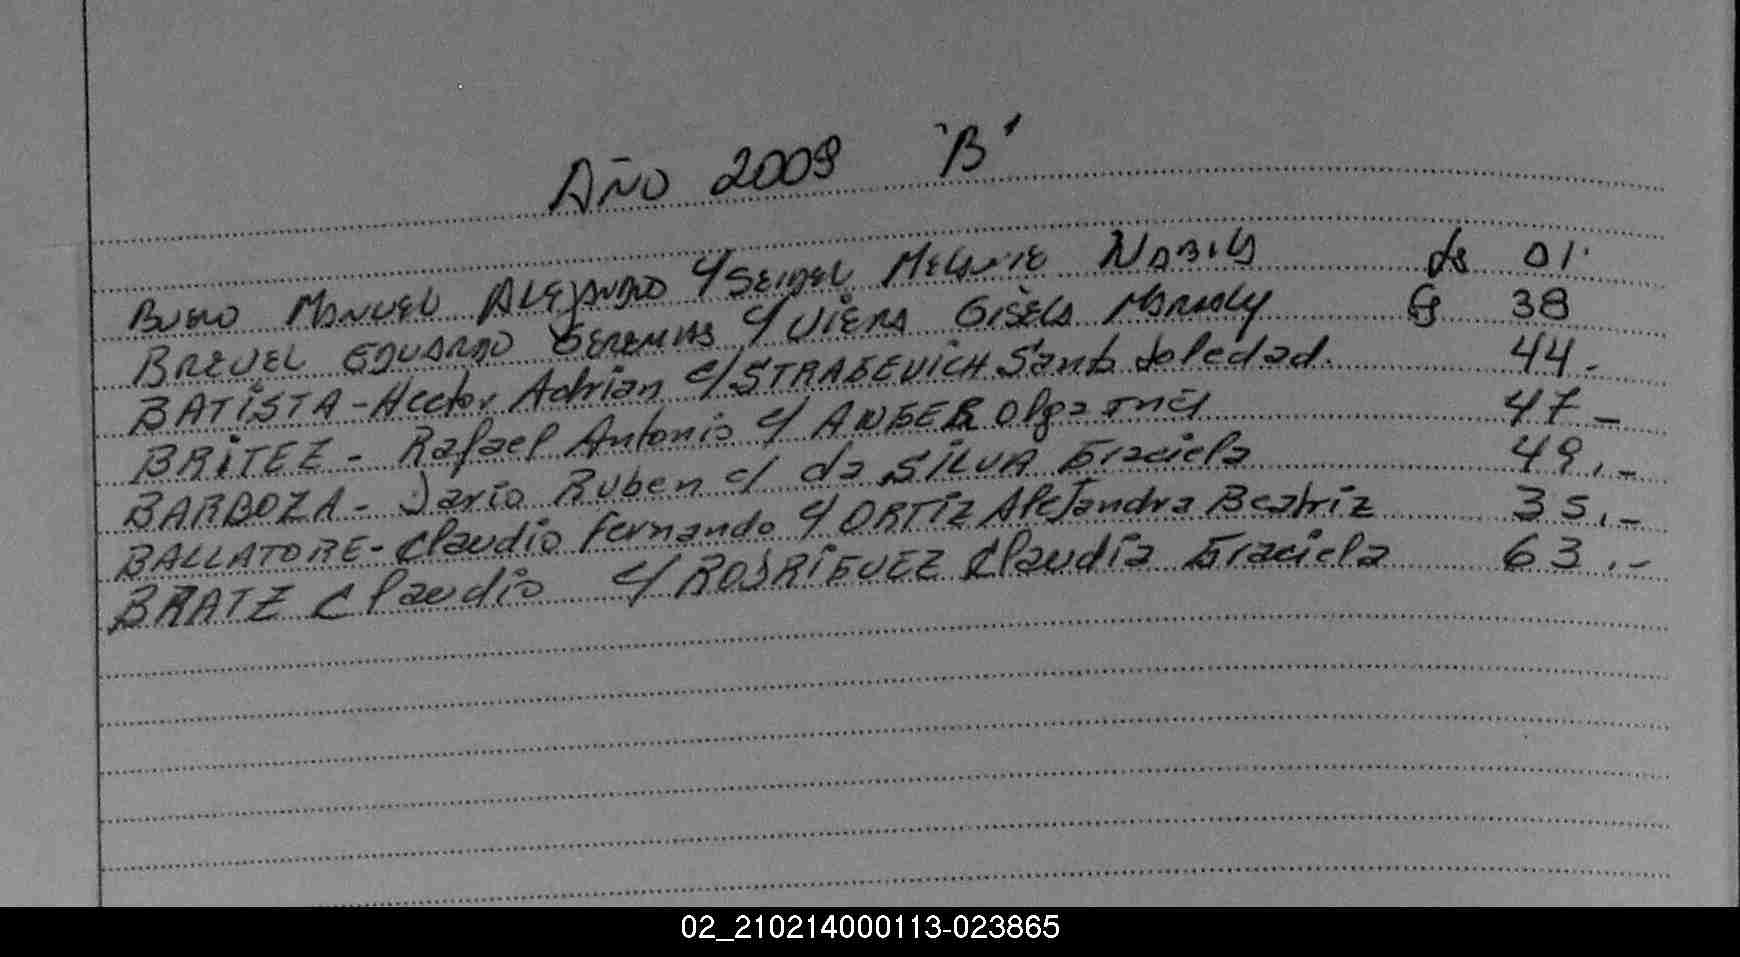 AÑO 2009 "B"
BUENO MANUEL ALEJANDRO c/ SEIDEL MELANIE NABILA fs 01.
BREUEL EDUARDO GEREMIAS c/ VIERA GISELA MARIELY fs 38
BATISTA - Hector Adrian c/ STRAGEVICH Santa Soledad. 44.
BRITEZ - Rafael Antonio c/ ANGER Olga Inés 47 -
BARBOZA - Dario Ruben c/ da SILVA Graciela 49.-
BALLATORE - Claudio Fernando c/ ORTIZ Alejandra Beatriz 35.-
BRATZ Claudio c/ RODRIGUEZ Claudia Graciela 63.-
02_210214000113-023865